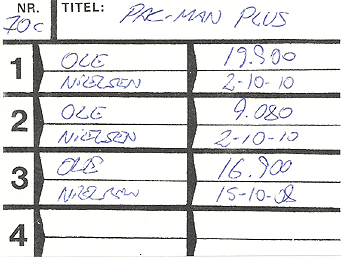 NR. TITEL:
70c PAC-MAN PLUS
1 OLE 19.900
NIELSEN 2-10-10
2 OLE 9.080
NIELSEN 2-10-10
3 OLE 16.900
NIELSEN 15-10-08
4